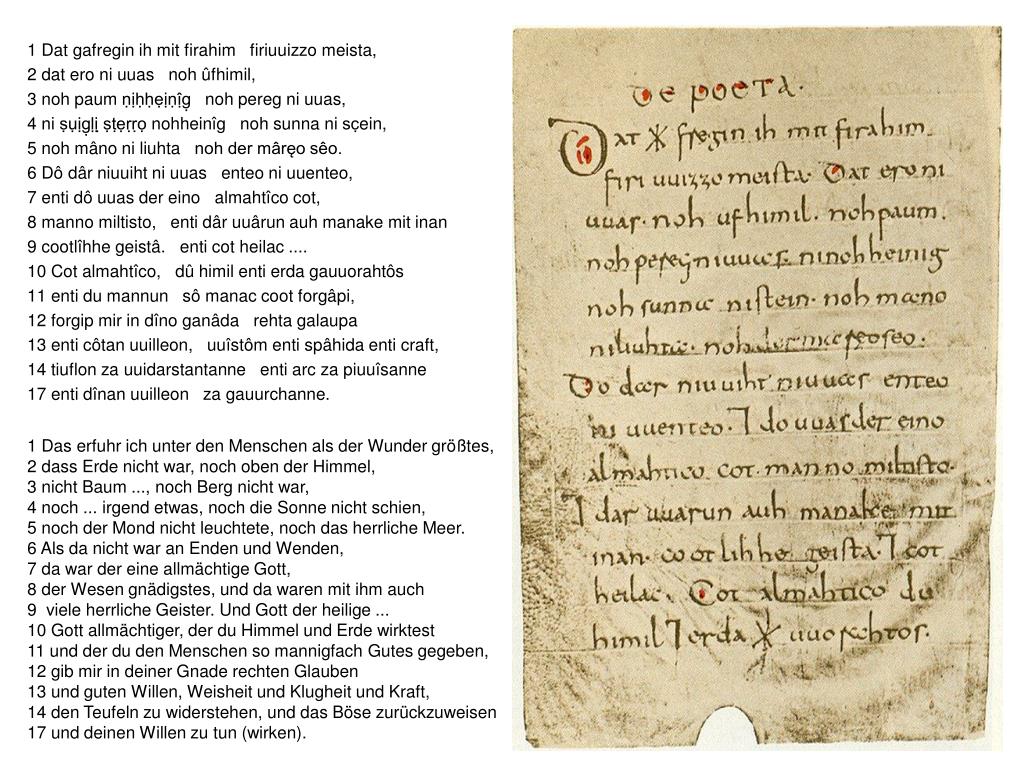 1 Dat gafregin ih mit firahim   firiuuizzo meista,
2 dat ero ni uuas   noh ûfhimil,
3 noh paum ṇịḥḥẹịṇîg̣   noh pereg ni uuas,
4 ni ṣụigḷị ṣṭẹṛṛọ nohheinîg   noh sunna ni sc̣ein,
5 noh mâno ni liuhta   noh der mârẹo sêo.
6 Dô dâr niuuiht ni uuas   enteo ni uuenteo,
7 enti dô uuas der eino   almahtîco cot,
8 manno miltisto,   enti dâr uuârun auh manake mit inan
9 cootlîhhe geistâ.   enti cot heilac ....
10 Cot almahtîco,   dû himil enti erda gauuorahtôs
11 enti du mannun   sô manac coot forgâpi,
12 forgip mir in dîno ganâda   rehta galaupa
13 enti côtan uuilleon,   uuîstôm enti spâhida enti craft,
14 tiuflon za uuidarstantanne   enti arc za piuuîsanne
17 enti dînan uuilleon   za gauurchanne.
1 Das erfuhr ich unter den Menschen als der Wunder größtes,
2 dass Erde nicht war, noch oben der Himmel,
3 nicht Baum ..., noch Berg nicht war,
4 noch ... irgend etwas, noch die Sonne nicht schien,
5 noch der Mond nicht leuchtete, noch das herrliche Meer.
6 Als da nicht war an Enden und Wenden,
7 da war der eine allmächtige Gott,
8 der Wesen gnädigstes, und da waren mit ihm auch
9  viele herrliche Geister. Und Gott der heilige ...
10 Gott allmächtiger, der du Himmel und Erde wirktest
11 und der du den Menschen so mannigfach Gutes gegeben,
12 gib mir in deiner Gnade rechten Glauben
13 und guten Willen, Weisheit und Klugheit und Kraft,
14 den Teufeln zu widerstehen, und das Böse zurückzuweisen
17 und deinen Willen zu tun (wirken).
De poeta.
Dat ᛡ fregin ih mit firahim
firi uuizzo meista. Dat ero ni
uuas. noh ufhimil. noh paum.
noh pereg ni uuas. ni nohheinig
noh sunna ni stein. noh mano
ni liuhta. noh der mareoseo.
Do dar niuuiht ni uuas enteo
ni uuenteo. ⁊ do uuas der eino
almahtico cot. manno miltisto.
⁊ dar uuarun auh manake mit
inan. cootlihhe geista. ⁊ cot
heilac. Cot almahtico du
himil ⁊ erda ᛡ uuorahtos.